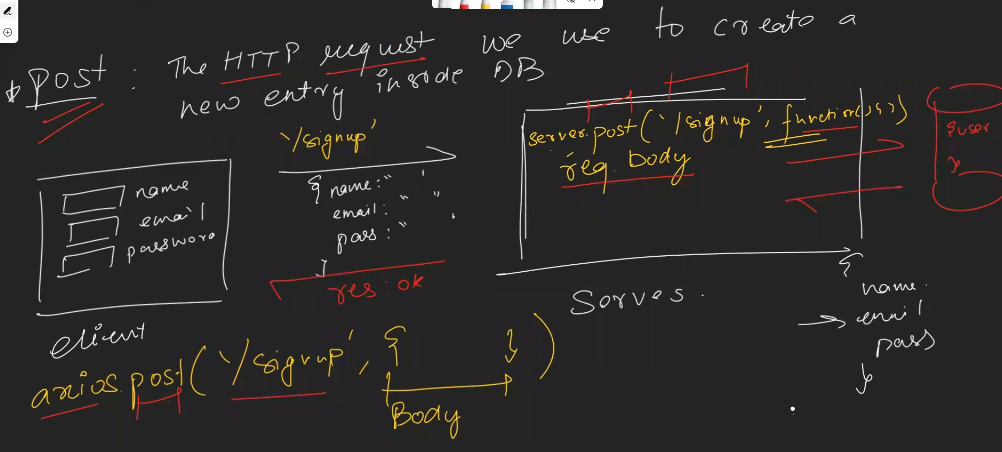 * post : The HTTP request we use to create a
new entry inside DB
'/signup'
name
email
password
client
{ name: " "
email: " "
pass: " "
}
res: ok
server.post('/signup', function(,,,))
req. body
{user
}
Serves.
{
name.
email
pass
}
axios.post('/signup', { })
Body